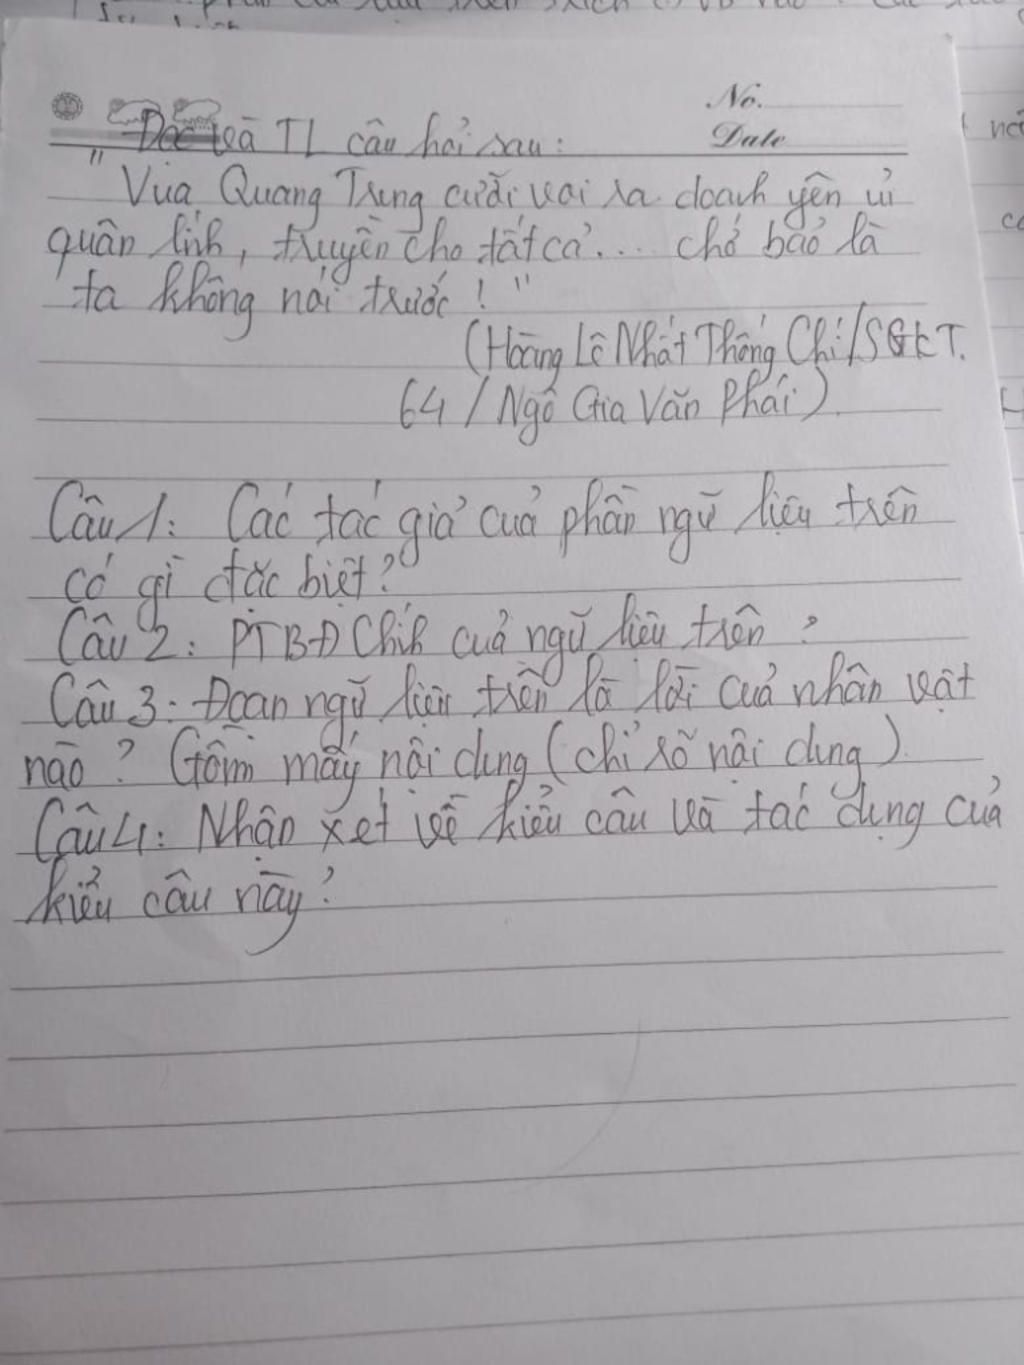 No.
Date
Đọc và TL câu hỏi sau:
"Vua Quang Trung cưỡi voi ra doanh yên ủi
quân lính, truyền cho tất cả.... chớ bảo là
ta không nói trước! "
(Hoàng Lê Nhất Thống Chí/SGK T.
64 / Ngô Gia Văn Phái).
Câu 1: Các tác giả của phần ngữ liệu trên
có gì đặc biệt?
Câu 2: PTBĐ Chính của ngữ liệu trên?
Câu 3: Đoạn ngữ liệu trên là lời của nhân vật
nào? Gồm mấy nội dung (chỉ rõ nội dung).
Câu 4: Nhận xét về kiểu câu và tác dụng của
kiểu câu này?